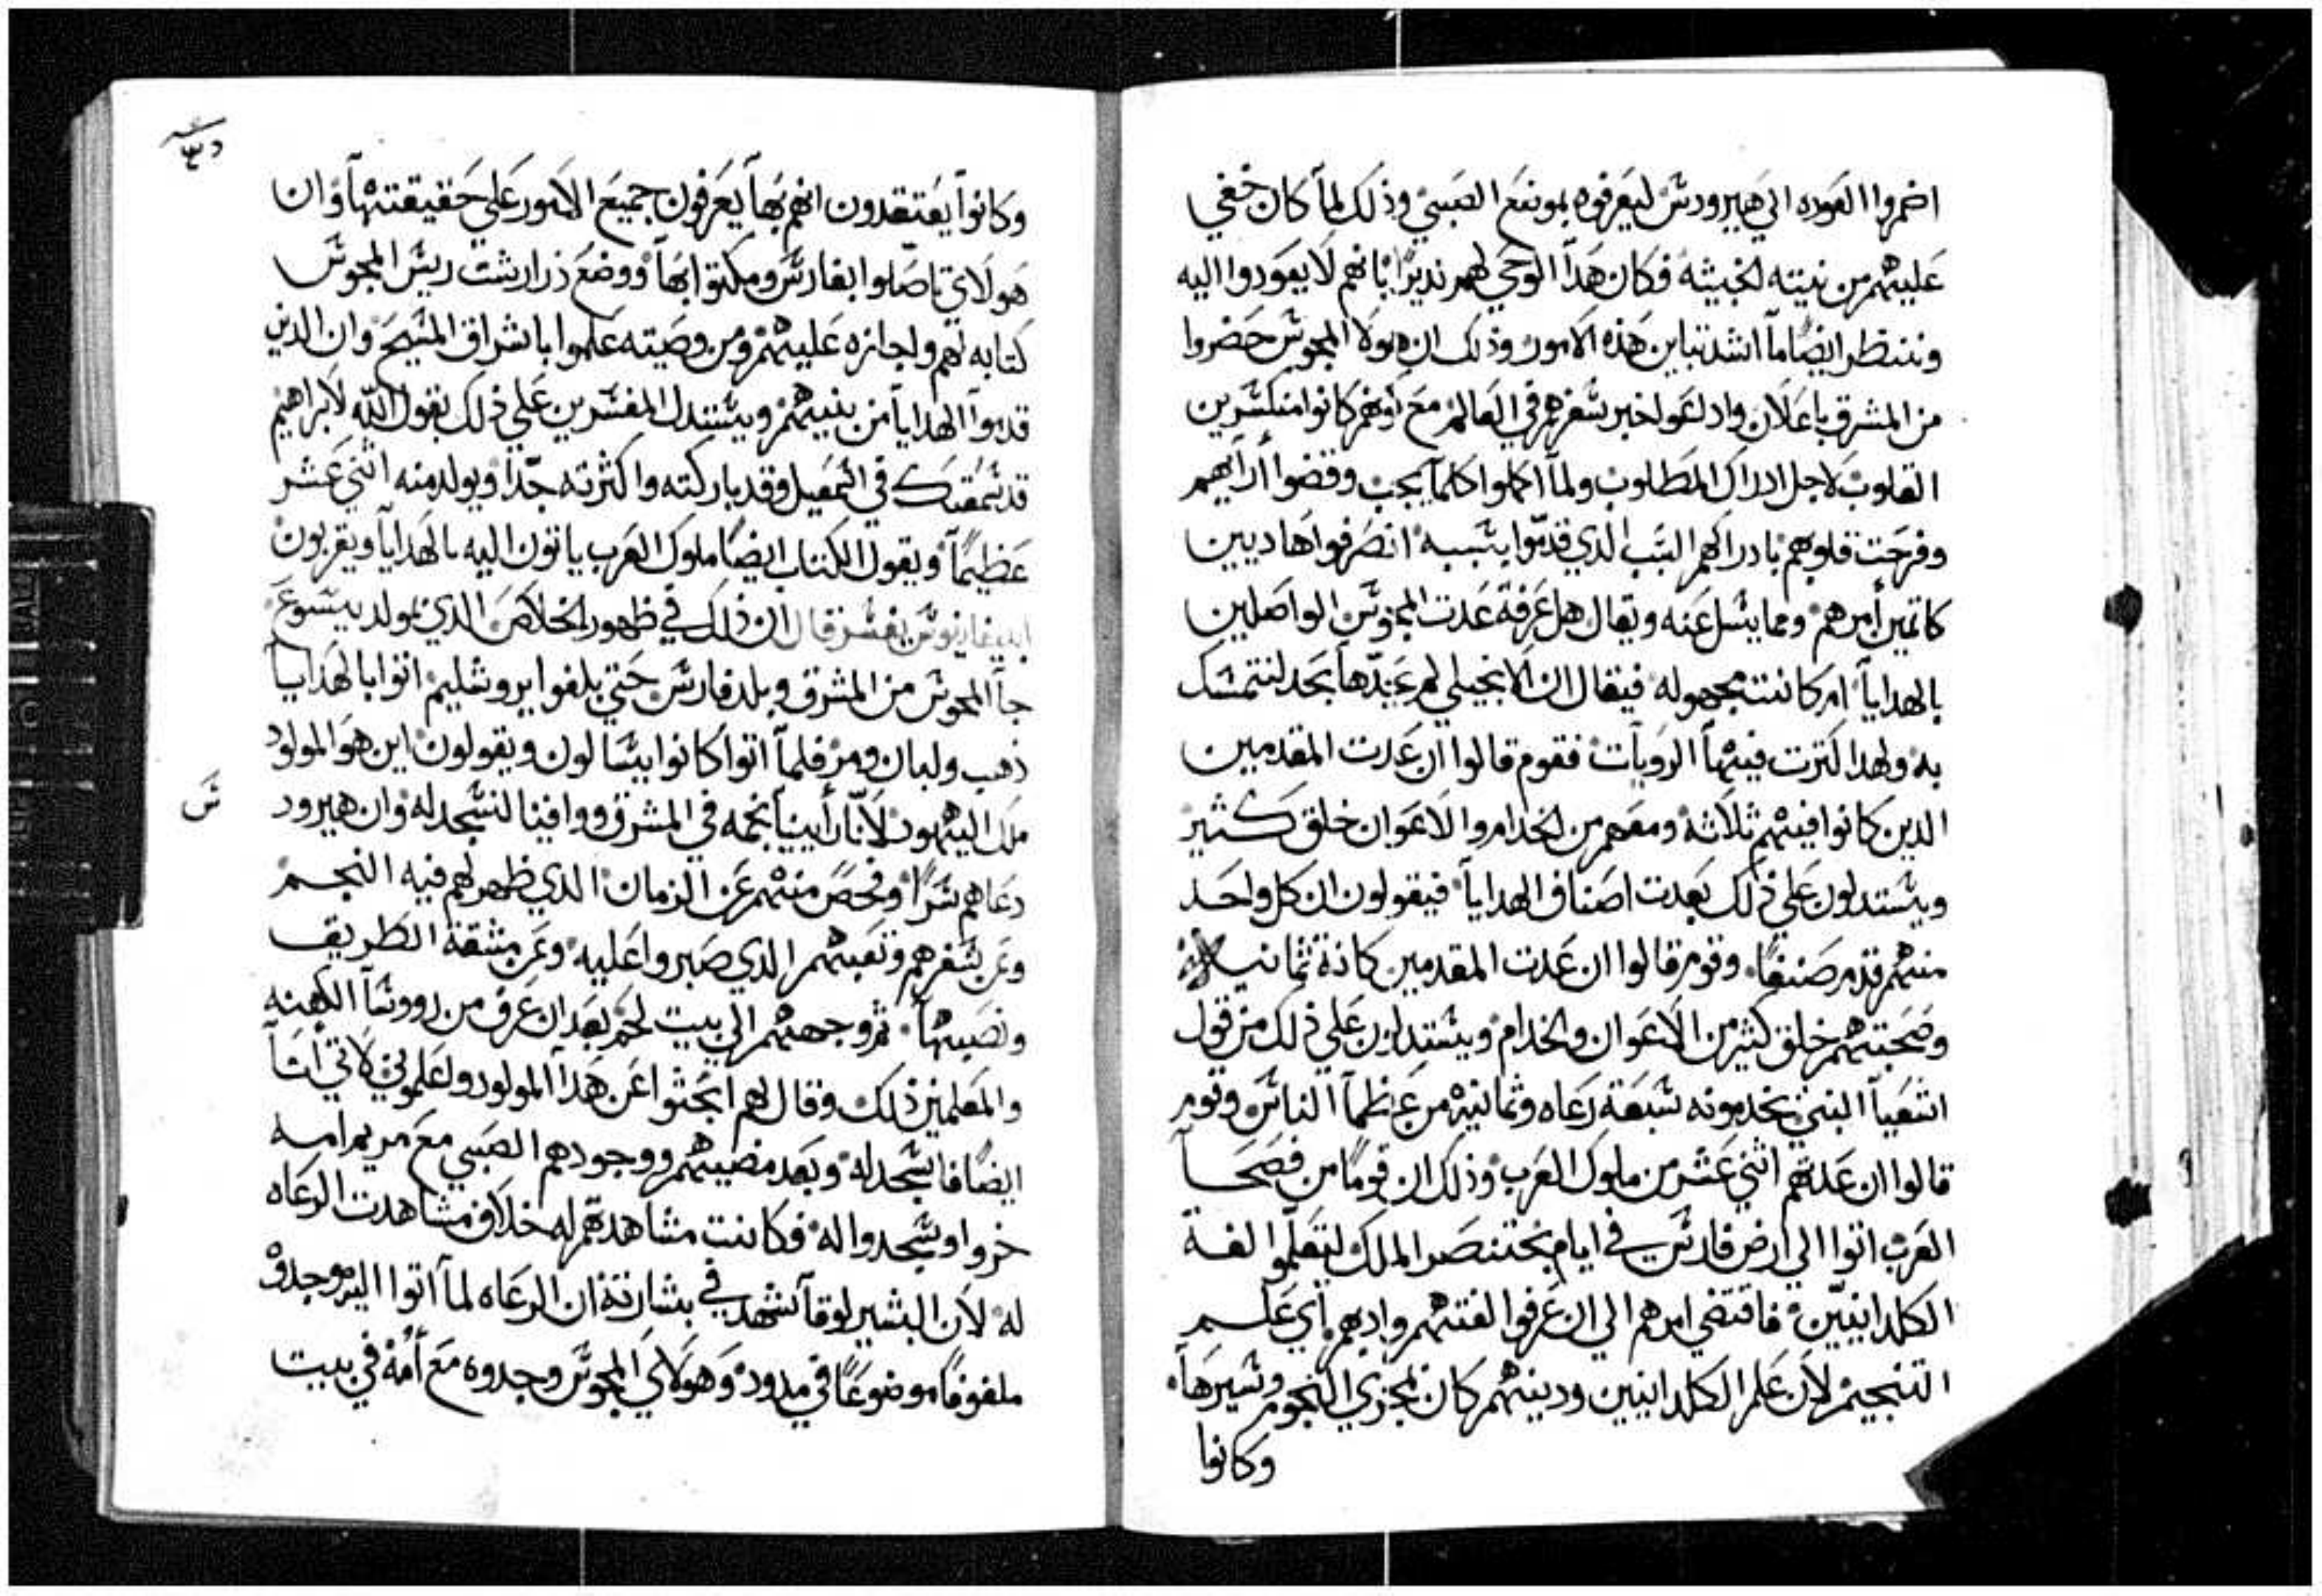 اضمروا العوده الي هيرودس ليعرفوه بموضع الصبي وذلك لما كان خفي
عليهم من نيته الخبيثه فكان هدا الوحي لهم نديرًا بانهم لا يعودوا اليه
وننظر ايضًا ما اشد تباين هذه الامور وذلك ان هولا المجوس حضروا
من المشرق باعلان واداعوا خبر سفرهم في العالم مع انهم كانوا منكسرين
القلوب لاجل ادراك المطلوب ولما اكملوا كلما يجب وقضوا أرآيهم
وفرحت قلوبهم بادراكهم السبب الدي قدموا بسببه انصرفوا هاديين
كاتمين أمرهم ومما يسل عنه ويقال هل عرفة عدت المجوس الواصلين
بالهدايا ام كانت مجهوله فيقال ان الانجيلي لم عدّها بحد لنتمسك
به ولهدا كترت فيها الرويات فقوم قالوا ان عدت المقدمين
الدين كانوا فيهم ثلاثة ومعهم من الخدام والاعوان خلق كثير
ويستدلون علي ذلك بعدت اصناف الهدايا فيقولون ان كل واحد
منهم قدم صنفًا وقوم قالوا ان عدت المقدمين كانة ثمانيه
وصحبتهم خلق كثير من الاعوان والخدام ويستدلون علي ذلك من قول
اشعيا النبي يخدمونه سبعة رعاه وثمانية من عظما الناس وقوم
قالوا ان عدتهم اثني عشر من ملوك العرب وذلك ان قومًا من فصحا
العرب اتوا الي ارض فارس في ايام بختنصر الملك لتعلموا لغة
الكلدانيين فاقتضي امرهم الي ان عرفوا لغتهم وادبهم أي علم
التنجيم لان علم الكلدانيين ودينهم كان بمجري النجوم وسيرها
وكانوا
وكانوا يعتقدون انهم بها يعرفون جميع الامور علي حقيقتها وان
هولاي تاصلوا بفارس ومكتوا بها ووضع زرارشت ريس المجوس
كتابه لهم واجازه عليهم ومن وصيته علموا باشراق المسيح وان الدين
قدموا الهدايا من بنيهم ويستدل المفسرين علي ذلك بقول الله لابراهيم
قد سمعتك في اسمعيل وقد باركته واكثرته جدًا ويولد منه اثني عشر
عظيمًا ويقول الكتاب ايضا ملوك العرب ياتون اليه بالهدايا ويقربون
ابيفانوس يفسر قال ان ذلك في ظهور الخلاص الدي لمولد يسوع
جآ المجوس من المشرق وبلد فارس حتي بلغوا يروشليم اتوا بالهدايا
ذهب ولبان ومر فلما اتوا كانوا يسالون ويقولون اين هو المولود
ملك اليهود لانا رأينا نجمه في المشرق ووافينا لنسجد له وان هيرود
س
دعاهم سرًا وفحص منهم عن الزمان الدي ظهر لهم فيه النجم
وعن سفرهم وتعبهم الدي صبروا عليه وعن مشقة الطريق
ونصبها ثم وجههم الي بيت لحم بعد ان عرف من رووسا الكهنه
والمعلمين ذلك وقال لهم ابحثوا عن هدا المولود واعلموني لاتي انا
ايضًا فاسجد له وبعد مضيهم ووجودهم الصبي مع مريم امه
خروا وسجدوا له فكانت مشاهدتهم له خلاف مشاهدت الرعاه
له لان البشير لوقا شهد في بشارته ان الرعاه لما أتوا اليه وجدوه
ملفوفًا موضوعًا في مدود وهولاي المجوس وجدوه مع أمه في بيت